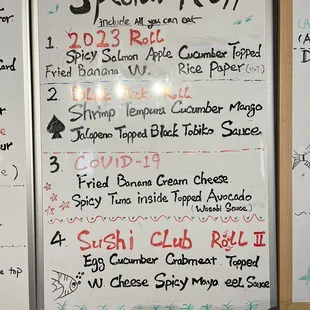 Special Roll
include All you can eat
1. 2023 Roll
Spicy Salmon Apple Cucumber Topped
Fried Banana W. Rice Paper (Hot)
2. Black Jack Roll
Shrimp Tempura Cucumber Mango
Jalapeno Topped Black Tobiko Sauce
3. COVID-19
Fried Banana Cream Cheese
Spicy Tuna inside Topped Avocado
(Wasabi Sauce)
4. Sushi Club Roll II
Egg Cucumber Crabmeat. Topped
W. Cheese Spicy Mayo eel Sauce
e top